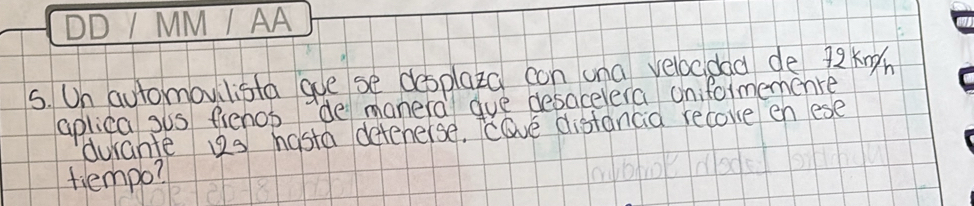 DD / MM / AA
5. Un automovilista que se desplaza con una velocidad de 72 km/h
aplica sus frenos de manera que desacelera uniformemente
durante 12s hasta detenerse. ¿Qué distancia recorre en ese
tiempo?